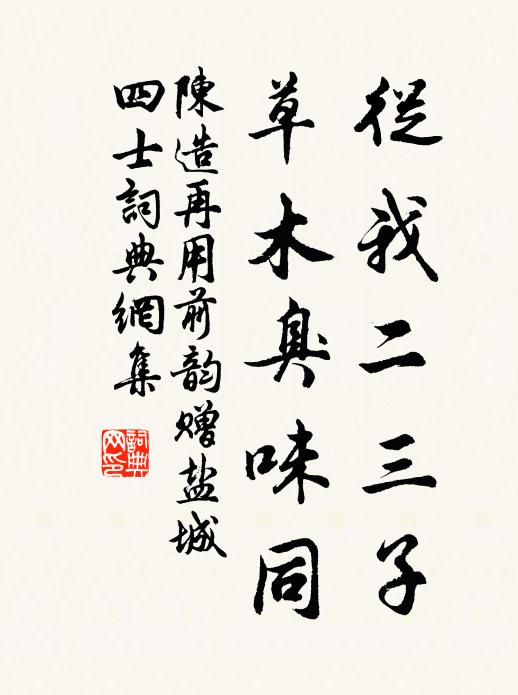 從我二三子
草木臭味同
陳造再用前韵贈盐城
四士詞典網集
詞典
网印